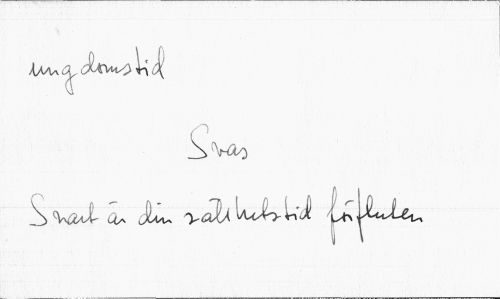 ungdomstid
Svas
Snart är din sällhetstid förfluten